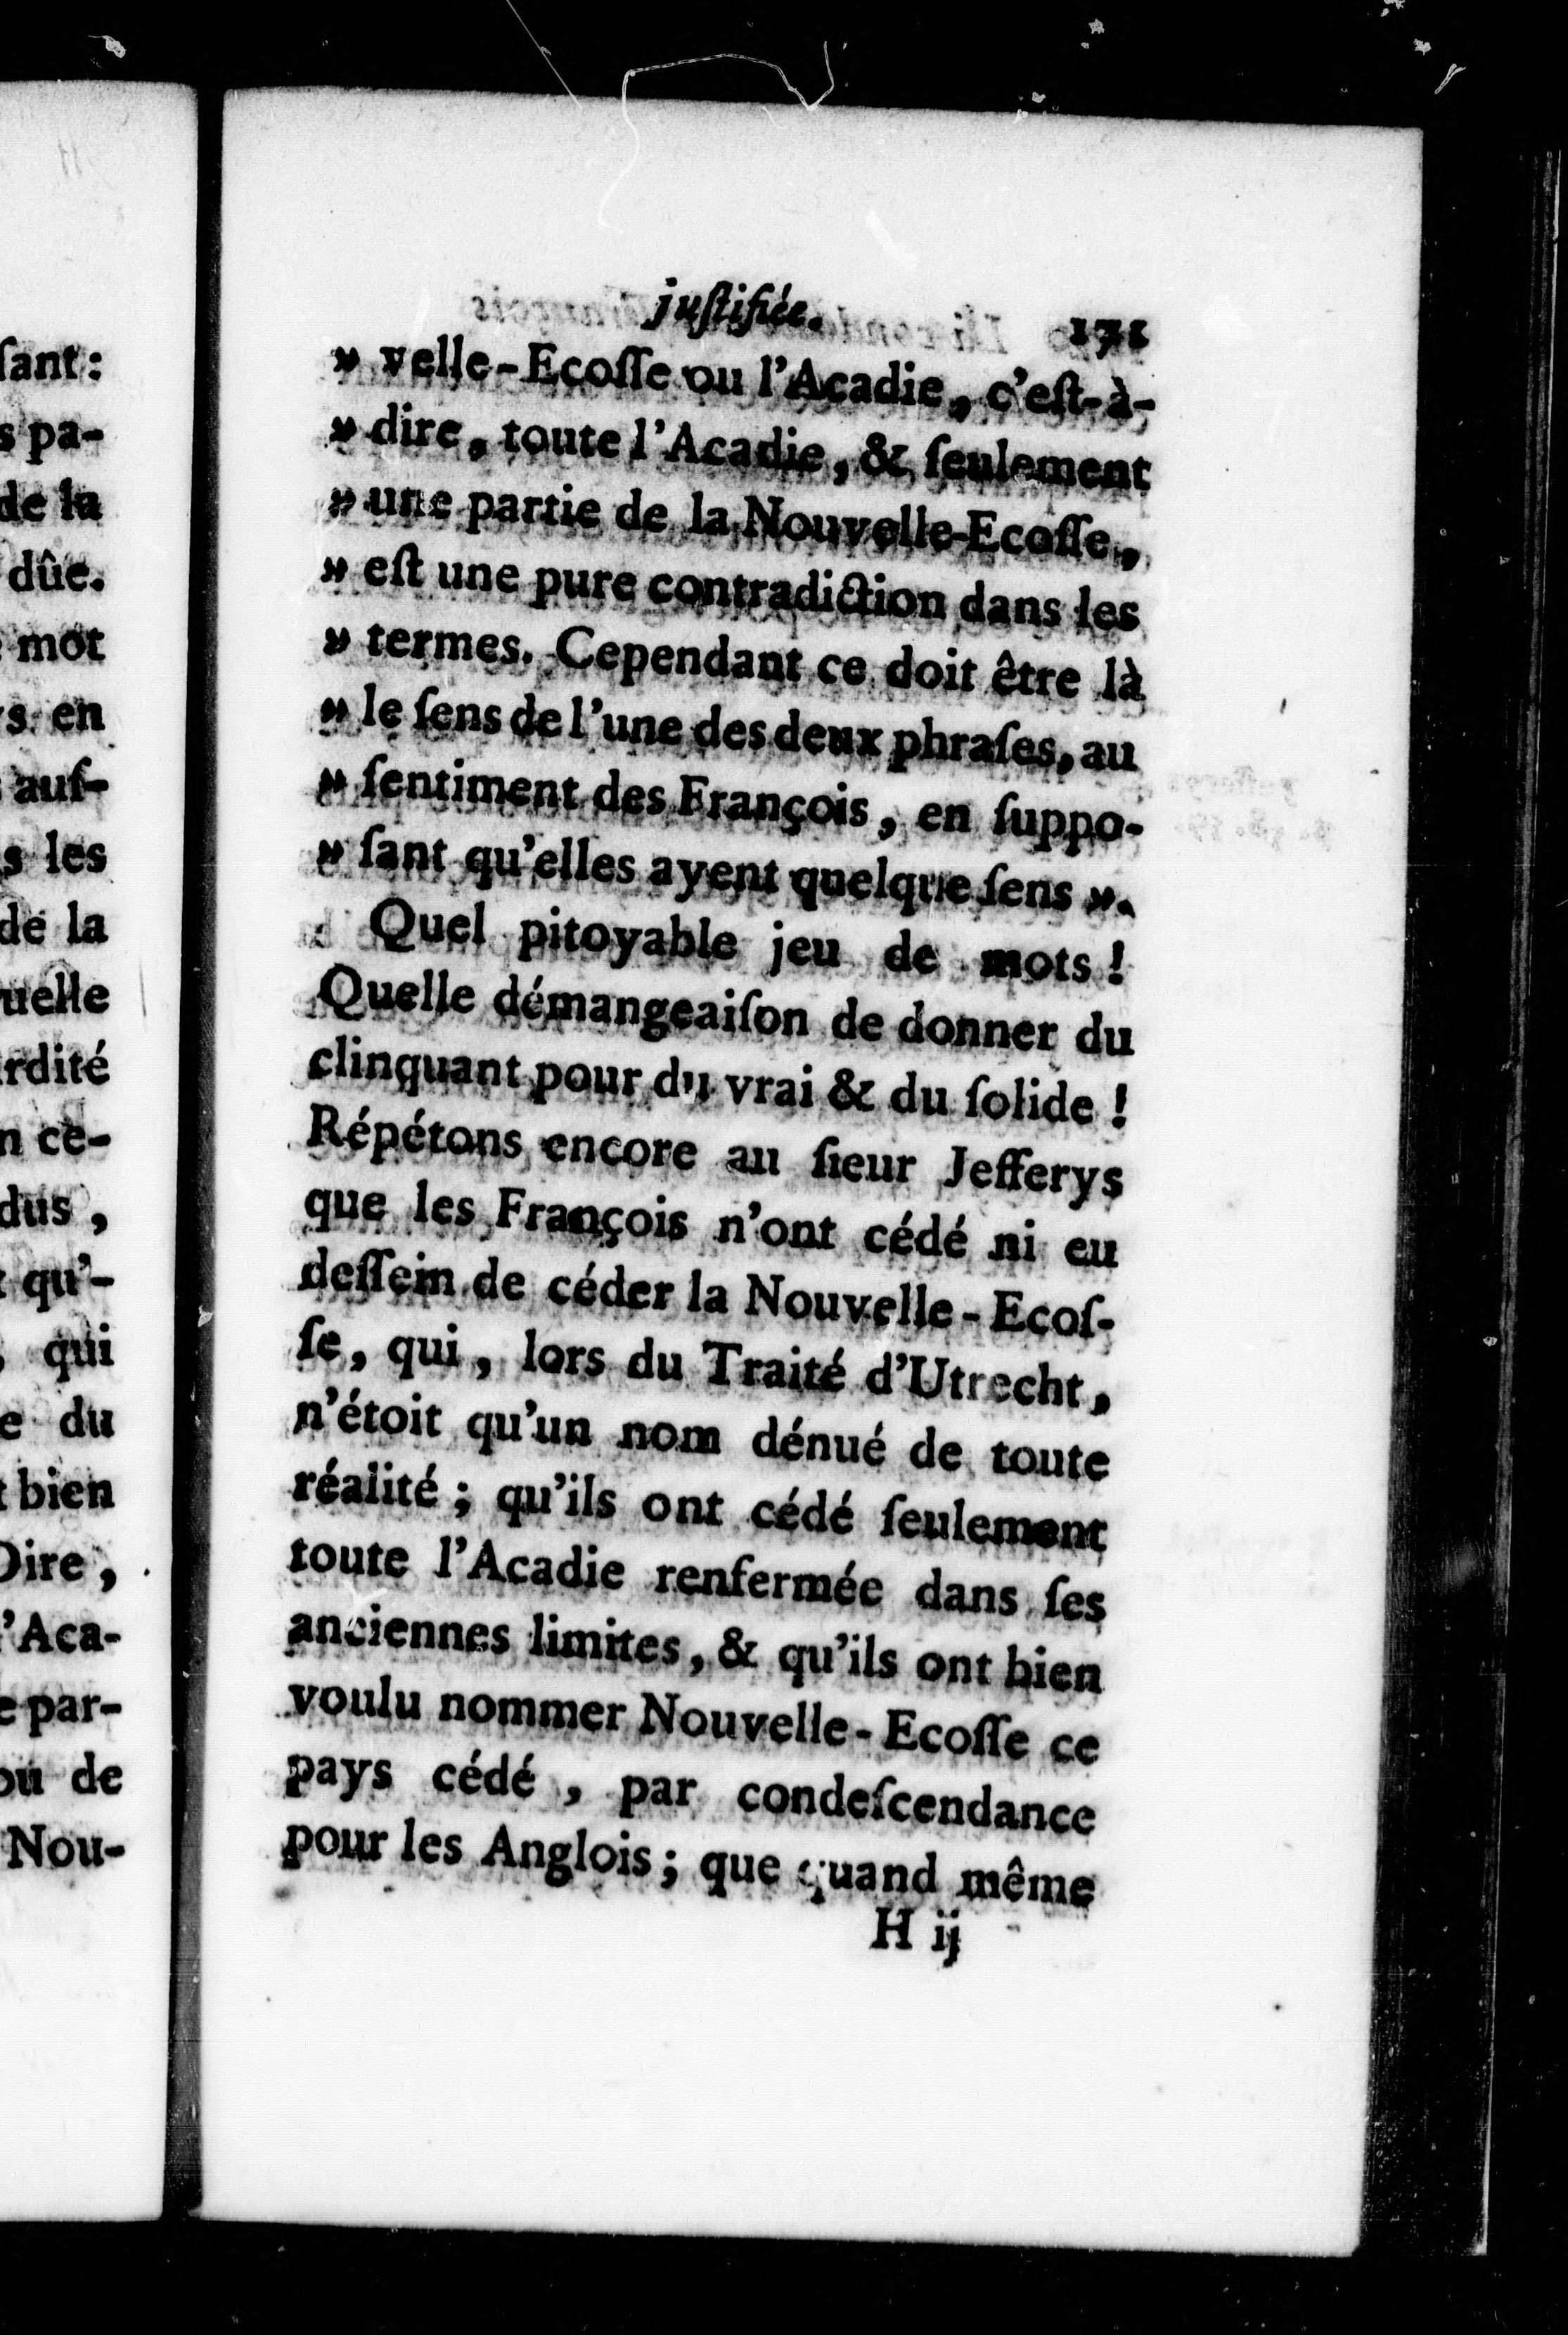 ſant:
s pa-
de la
dûe.
mot
s en
auſ-
s les
de la
uelle
rdité
n ce-
dus,
qu'-
, qui
e du
t bien
Dire,
l'Aca-
e par-
ou de
Nou-
juſtifiée. 171
» velle-Ecoſſe ou l'Acadie, c'eſt-à-
» dire, toute l'Acadie, & ſeulement
» une partie de la Nouvelle-Ecoſſe,
» eſt une pure contradiction dans les
» termes. Cependant ce doit être là
» le ſens de l'une des deux phraſes, au
» ſentiment des François, en ſuppo-
» ſant qu'elles ayent quelque ſens ».
Quel pitoyable jeu de mots !
Quelle démangeaiſon de donner du
clinquant pour du vrai & du ſolide !
Répétons encore au ſieur Jefferys
que les François n'ont cédé ni eu
deſſein de céder la Nouvelle-Ecoſ-
ſe, qui, lors du Traité d'Utrecht,
n'étoit qu'un nom dénué de toute
réalité ; qu'ils ont cédé ſeulement
toute l'Acadie renfermée dans ſes
anciennes limites, & qu'ils ont bien
voulu nommer Nouvelle-Ecoſſe ce
pays cédé, par condeſcendance
pour les Anglois ; que quand même
H ij